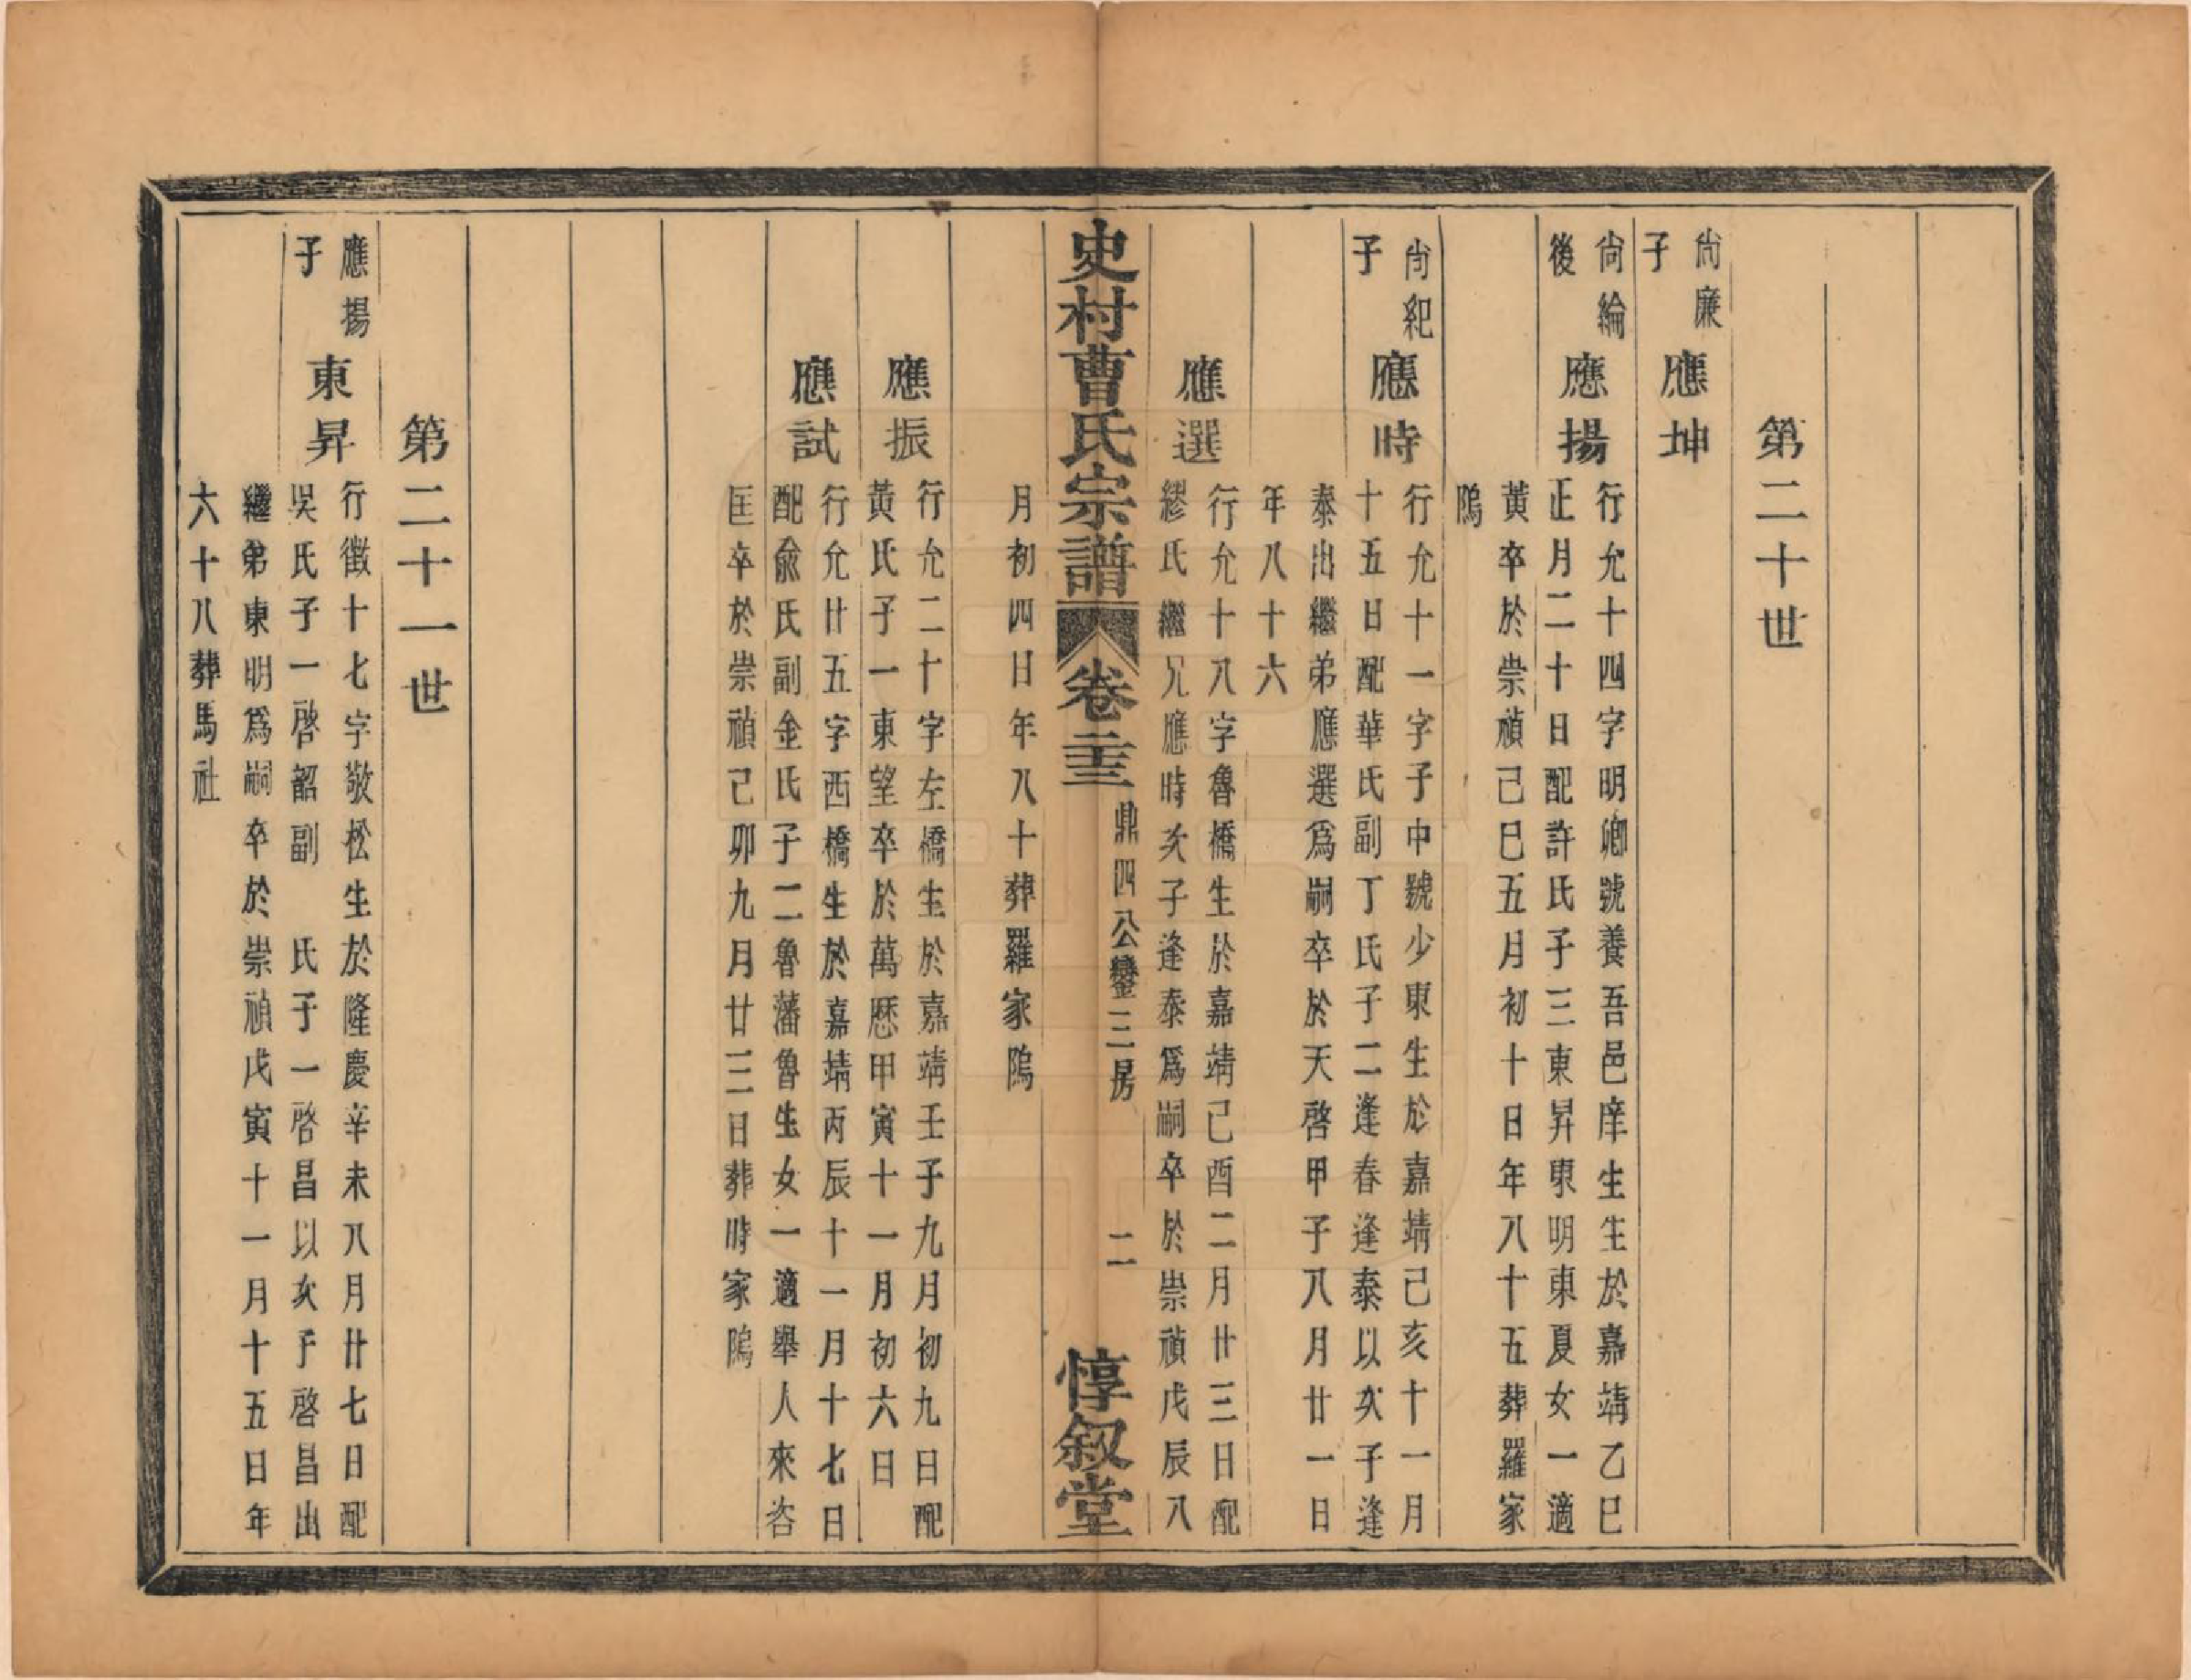 第二十世
尚廉子
應坤
尚綸後
應揚
行允十四字明卿號養吾邑庠生生於嘉靖乙巳
正月二十日配許氏子三東昇東明東夏女一適
黃卒於崇禎己巳五月初十日年八十五葬羅家
隖
尚紀子
應時
行允十一字子中號少東生於嘉靖己亥十一月
十五日配華氏副丁氏子二逢春逢泰以次子逢
泰出繼弟應選爲嗣卒於天啓甲子八月廿一日
年八十六
應選
行允十八字魯橋生於嘉靖己酉二月廿三日配
繆氏繼兄應時次子逢泰爲嗣卒於崇禎戊辰八
月初四日年八十葬羅家隖
史村曹氏宗譜 卷二十三 鼎四公 三房 二 惇叙堂
應振
行允二十字左橋生於嘉靖壬子九月初九日配
黃氏子一東望卒於萬歷甲寅十一月初六日
應試
行允廿五字西橋生於嘉靖丙辰十一月十七日
配兪氏副金氏子二魯藩魯生女一適舉人來咨
匡卒於崇禎己卯九月廿三日葬時家隖
第二十一世
應揚子
東昇
行徵十七字敬松生於隆慶辛未八月廿七日配
吳氏子一啓韶副　氏子一啓昌以次子啓昌出
繼弟東明爲嗣卒於崇禎戊寅十一月十五日年
六十八葬馬社